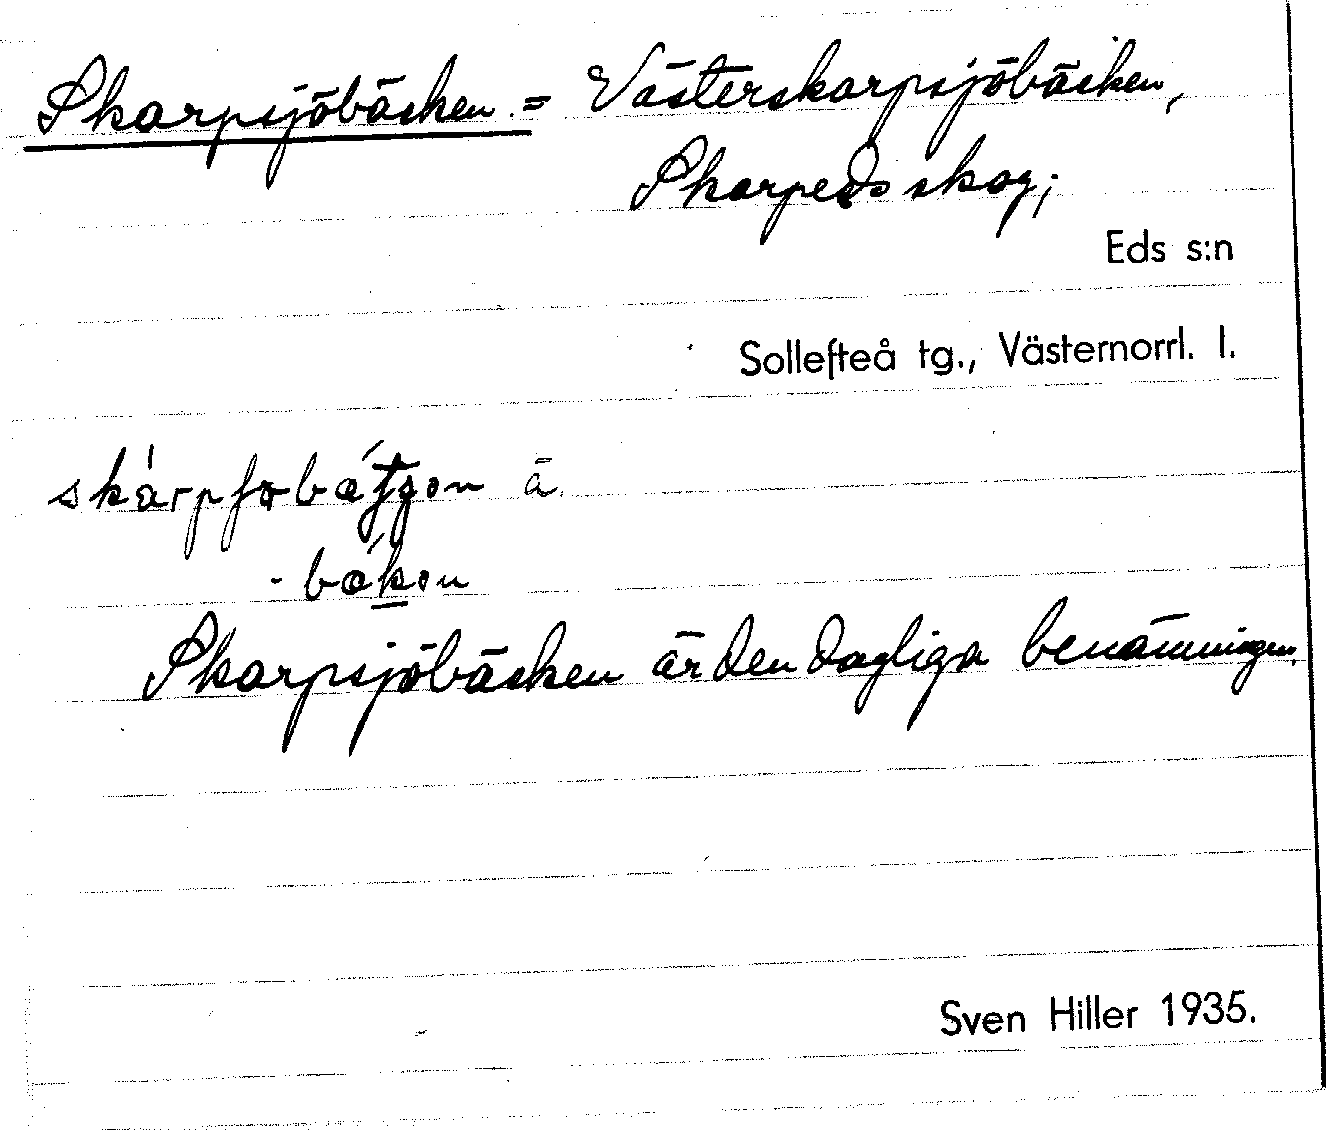 Skarpsjöbäcken = Västerskarpsjöbäcken,
Skarpeds skog;
Eds s:n
Sollefteå tg., Västernorrl. l.
å
Skarpsjöbäcken är den dagliga benämningen.
Sven Hiller 1935.